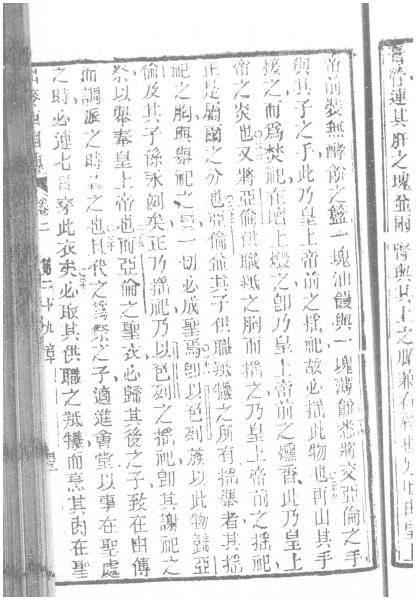 脊帶連其肝之塊並兩脊與其上之脂兼右肩也又由皇上
帝前裝無酵餅之籃一塊油饅與一塊薄餅悉將交亞倫之手
與其子之手此乃皇上帝前之搖祀故必搖此物也再由其手
接之而爲焚祀在壇上燬之卽乃皇上帝前之燻香此乃皇上
帝之炎也又將亞倫供職羝之胸而搖之乃皇上帝前之搖祀
正是屬爾之分也亞倫並其子供職羝犧之所有搖舉者其搖
祀之胸與舉祀之肩一切必成聖焉卽以色列族以此物歸亞
倫及其子孫永刻矣正乃搖祀乃以色列之搖祀卽其謝祀之
祭以舉奉皇上帝也而亞倫之聖衣必歸其後之子致在由傅
而調派之時着之也且代之爲祭之子適進會堂以事在聖處
之時必連七日穿此衣矣必取其供職之羝犧而烹其肉在聖
卷二 第二十九章